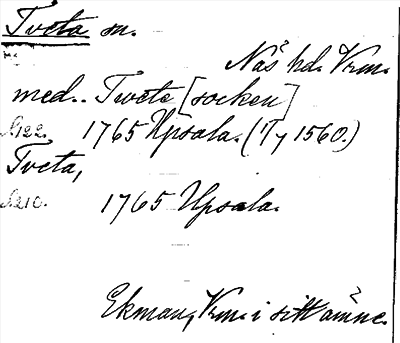 Tveta sn.
Näs hd. Vrm.
med. Twete [socken]
1765 Upsala. (1/7 1560.)
Tveta,
1765 Upsala.
Ekman, Vrm. i sitt ämne.